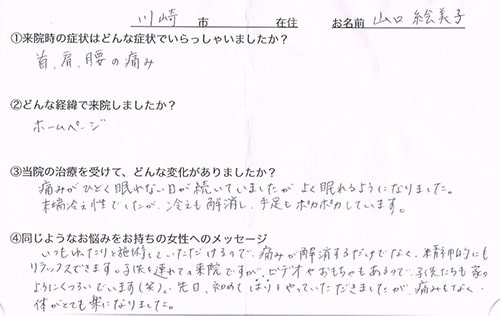 川崎 市 在住 お名前 山口 絵美子
①来院時の症状はどんな症状でいらっしゃいましたか？
首、肩、腰の痛み
②どんな経緯で来院しましたか？
ホームページ
③当院の治療を受けて、どんな変化がありましたか？
痛みがひどく眠れない日が続いていましたが よく眠れるようになりました。
末端冷え性でしたが、冷えも解消し、手足もポカポカしています。
④同じようなお悩みをお持ちの女性へのメッセージ
いつもゆったりと施術していただけるので、痛みが解消するだけでなく、精神的にも
リラックスできます。子供を連れての来院ですが、ビデオやおもちゃもあるので、子供たちも家の
ようにくつろいでいます(笑)。先日、初めて はりをやっていただきましたが、痛みもなく、
体がとても楽になりました。